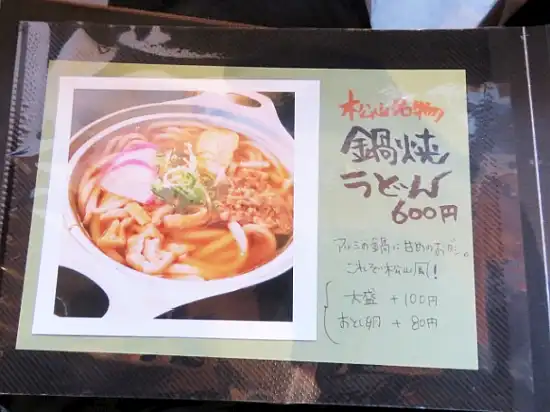 松山名物
鍋焼
うどん
600円
アルミの鍋に甘めのおだし。
これぞ松山風!
大盛 +100円
おとし卵 +80円